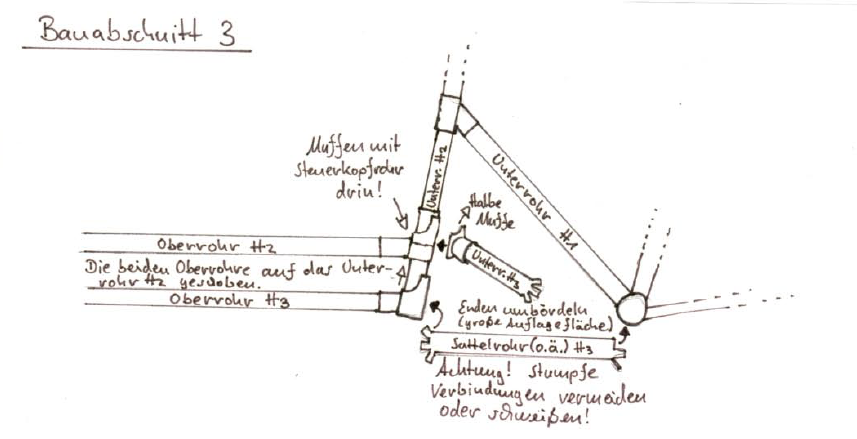 Bauabschnitt 3
Muffen mit
Steuerkopfrohr
drin!
Unterr. #2
Unterrohr #1
Halbe
Muffe
Oberrohr #2
Unterr. #3
Die beiden Oberrohre auf das Unter-
rohr #2 geschoben.
Oberrohr #3
Enden umbördeln
(große Auflagefläche)
Sattelrohr (o.ä.) #3
Achtung! Stumpfe
Verbindungen vermeiden
oder schweißen!